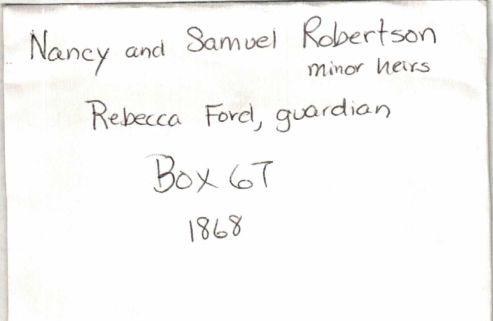 Nancy and Samuel Robertson
minor heirs
Rebecca Ford, guardian
Box 67
1868